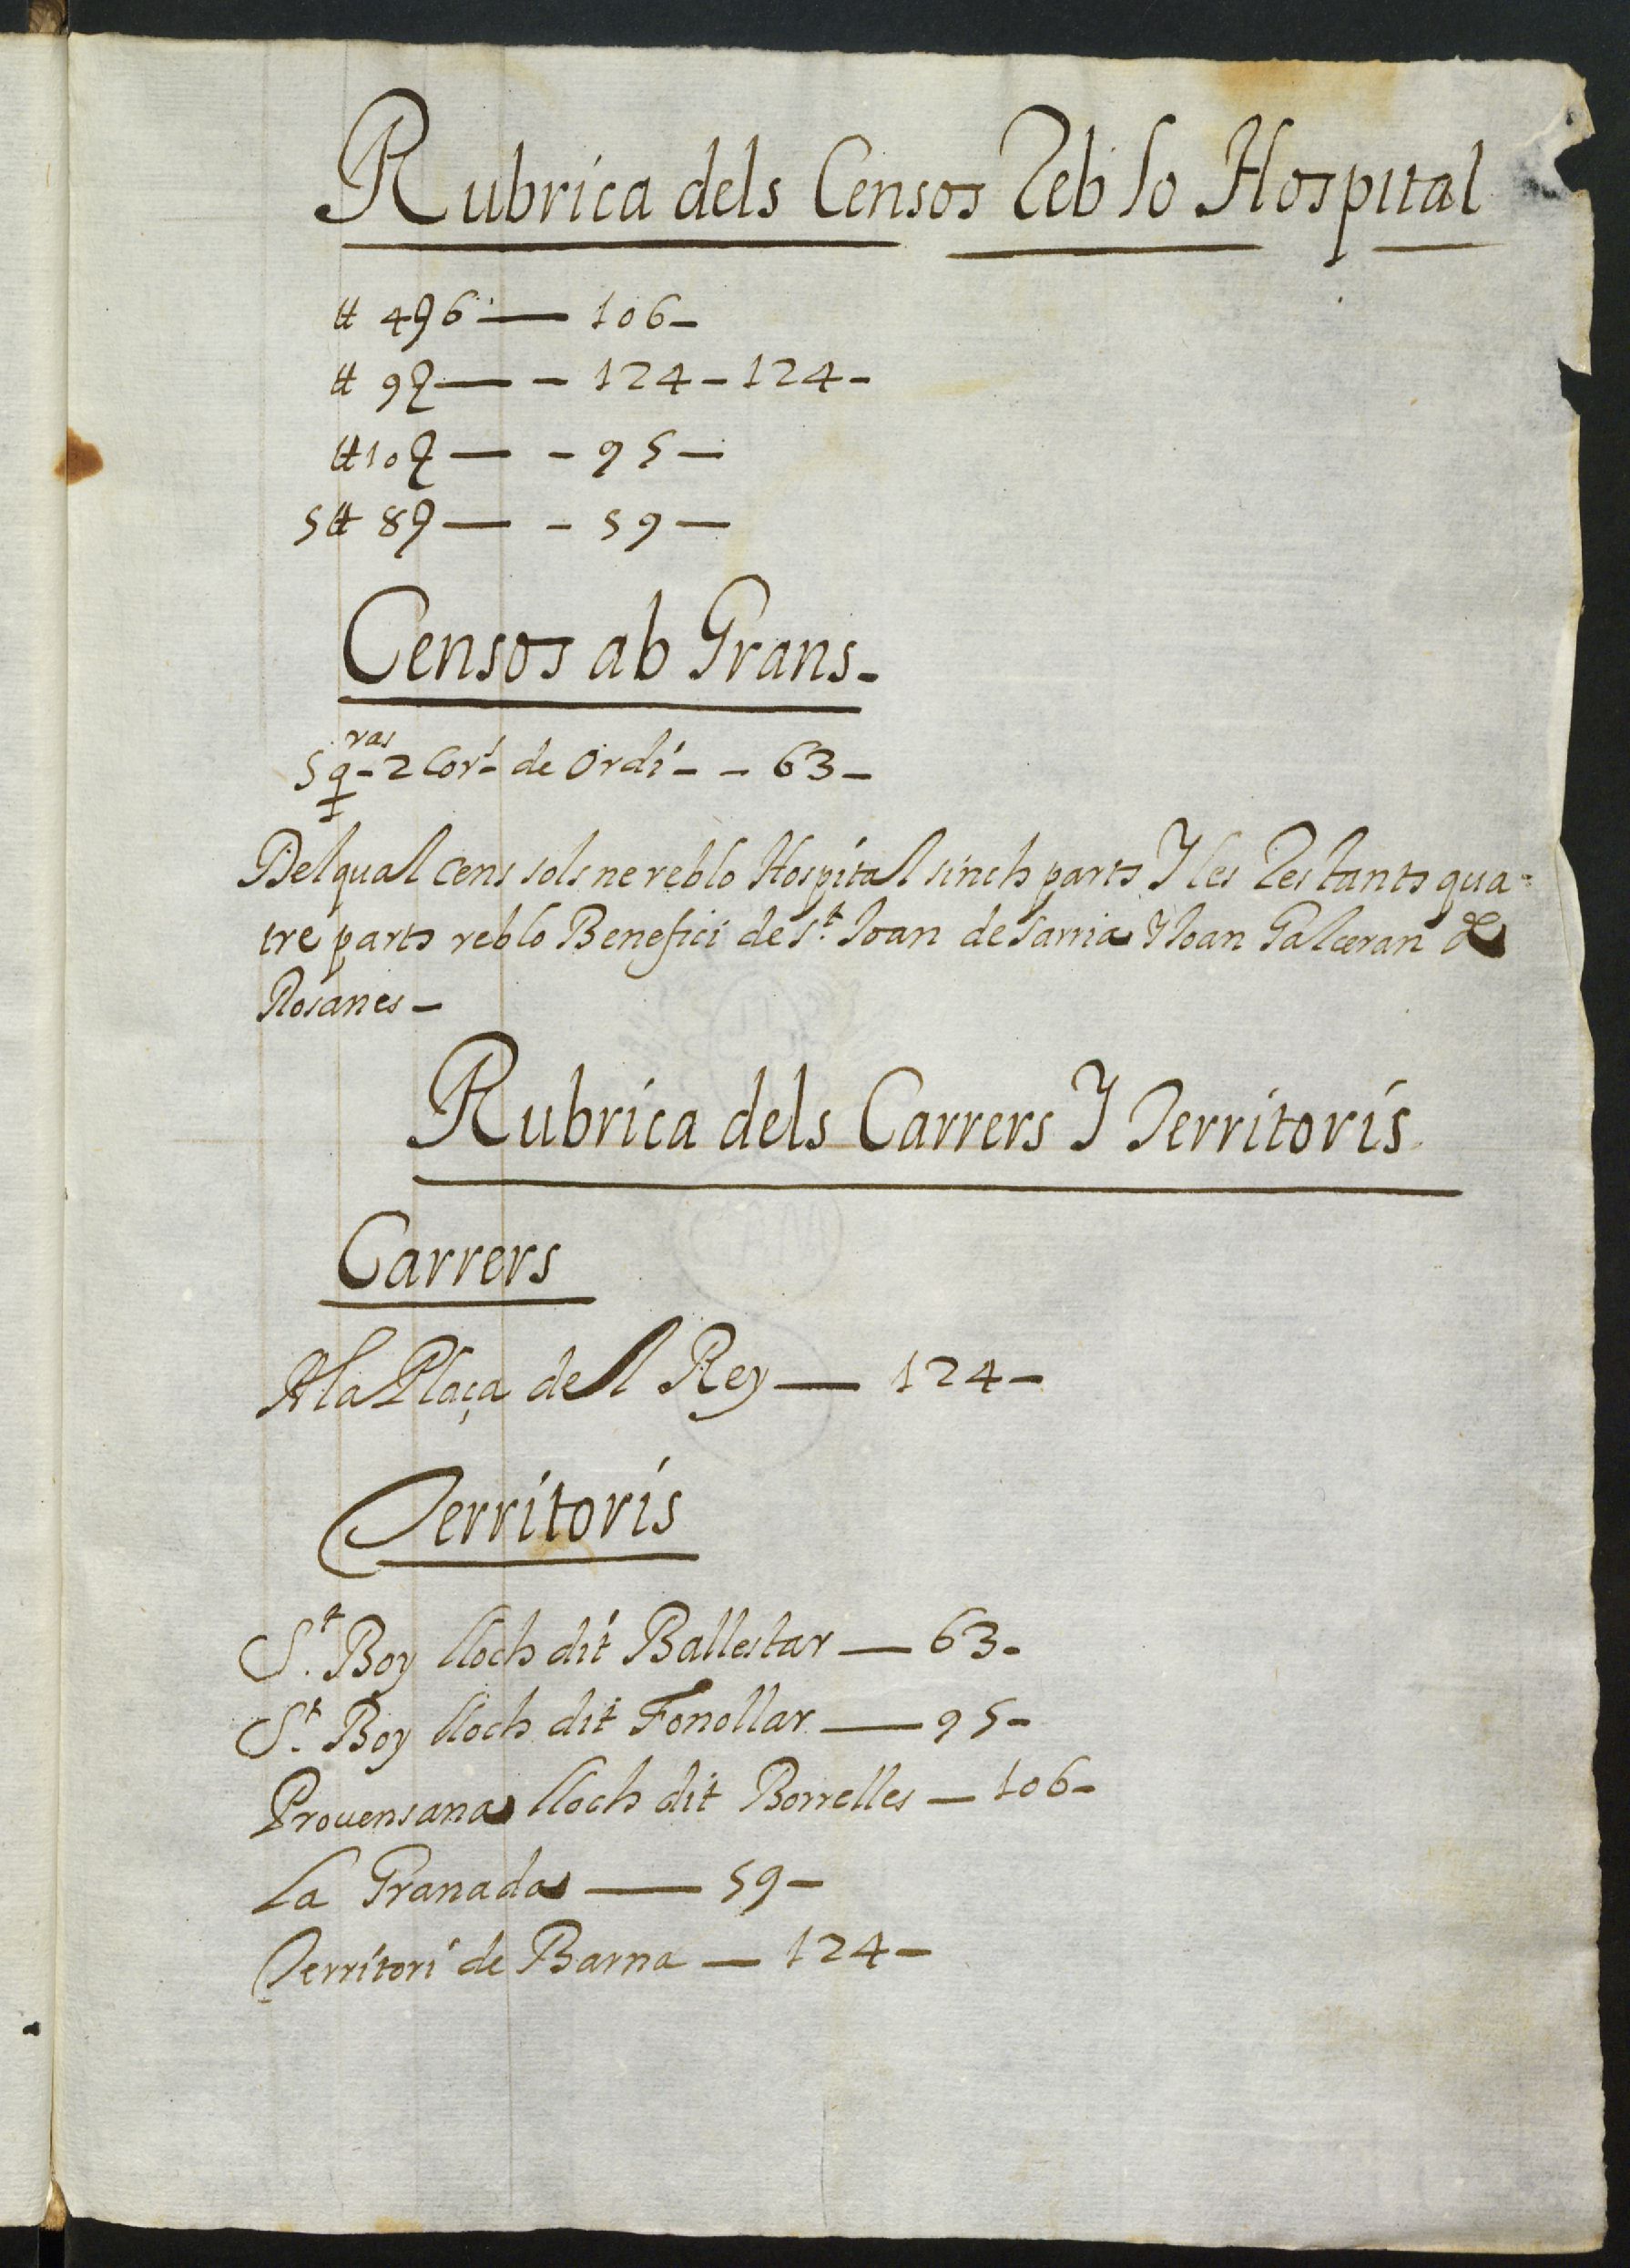 Rubrica dels Censos Reb lo Hospital
₶ 4 ß 6 — 106 -
₶ 9 ß — - 124 - 124 -
₶ 10 ß — - 95 —
5 ₶ 8 ß — - 59 —
Censos ab Grans -
5 q.ras - 2 Cor.s de Ordi - - 63 -
Del qual Cens sols ne reb lo Hospital sinch parts Y les Restants qua=
tre parts reb lo Benefici de S.t Joan de Sarria Y Joan Galceran de
Rosanes -
Rubrica dels Carrers Y Territoris
Carrers
A la Plaça del Rey — 124 -
Territoris
S.t Boy lloch dit Ballestar — 63 -
S.t Boy lloch dit Fonollar — 95 -
Prouensana lloch dit Borrelles — 106 -
La Granada — 59 -
Territori de Barna — 124 -